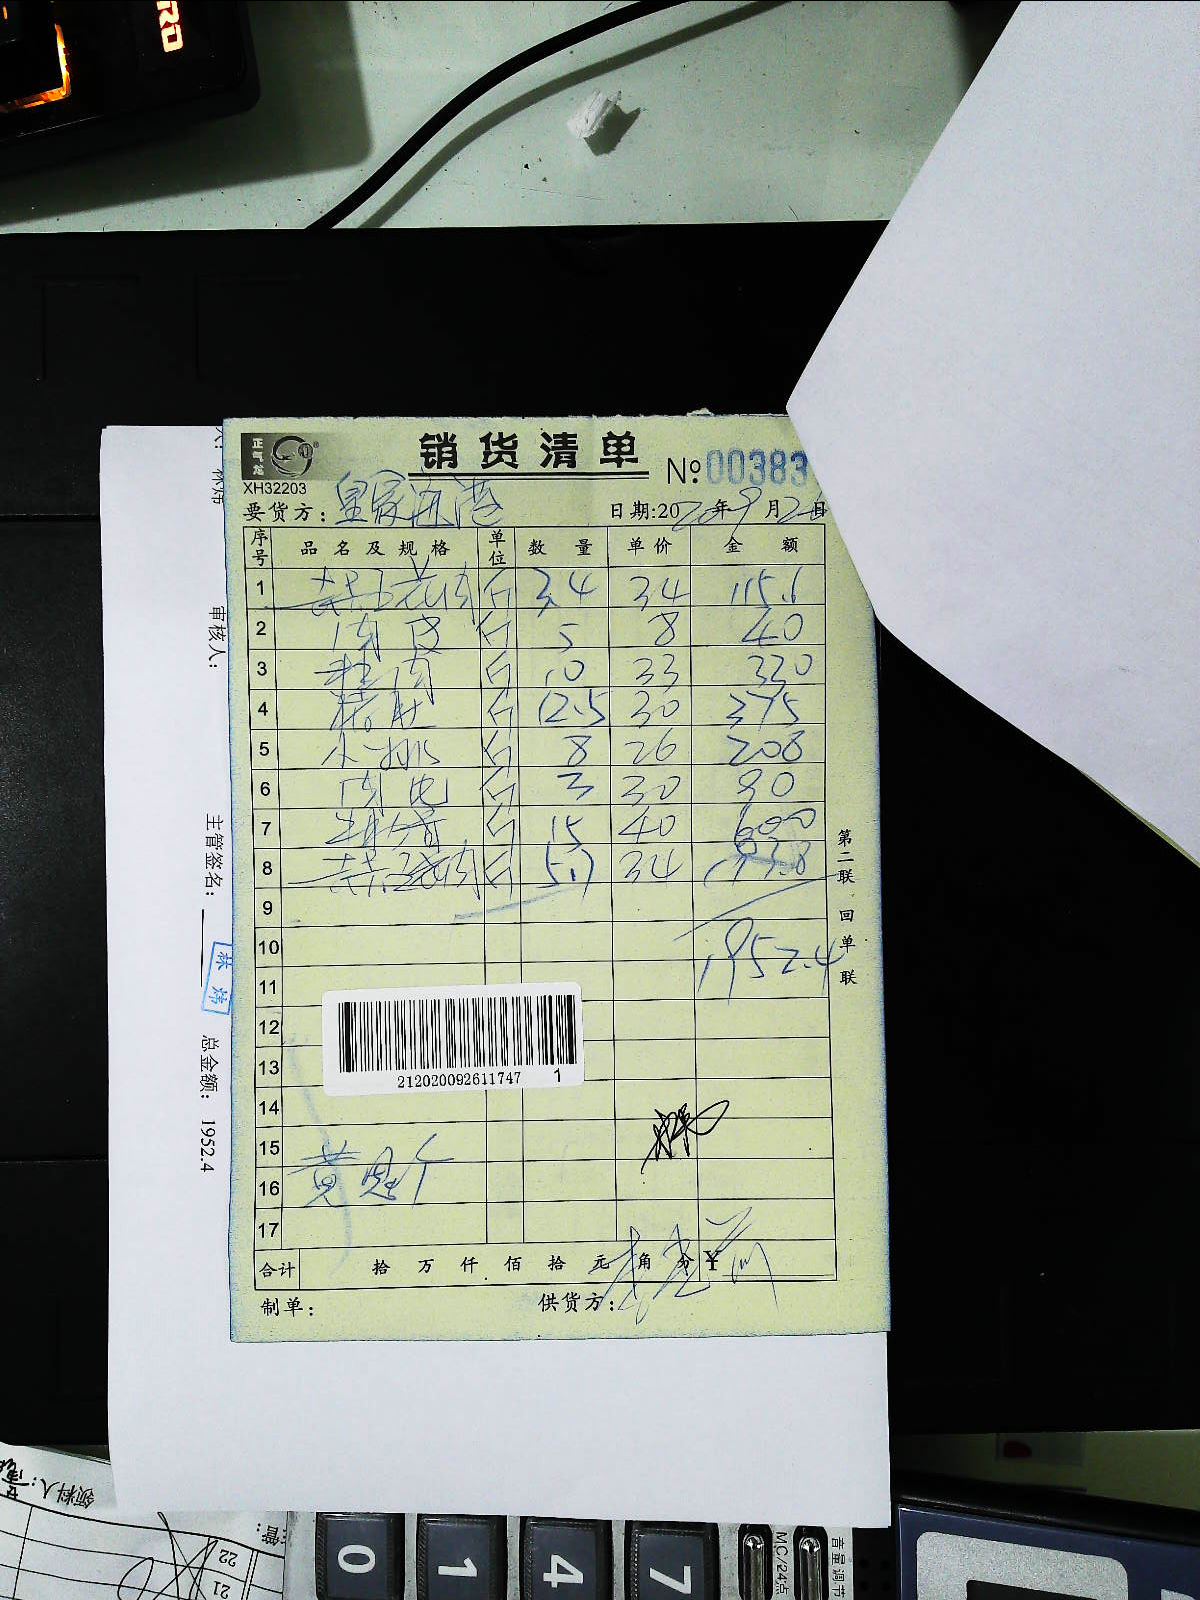 正气龙
XH32203
销货清单
№00383
要货方: 皇家海港
日期:2020年9月26日
序号 品名及规格 单位 数量 单价 金额
1 斤 3.4 34 115.6
2 肉皮 斤 5 8 40
3 斤 10 33 330
4 猪肚 斤 12.5 30 375
5 小排 斤 8 26 208
6 斤 3 30 90
7 斤 15 40 600
8 斤 5.7 34 193.8
9
10
1952.4
11
12
13
212020092611747 1
14
15
16
17
合计 拾 万 仟 佰 拾 元 角 分 ¥
制单:
供货方:
第二联 回单联
审核人:
主管签名:
林炜
总金额: 1952.4
领料人:
22
21
0
1
4
7
MC/24点
音量调节